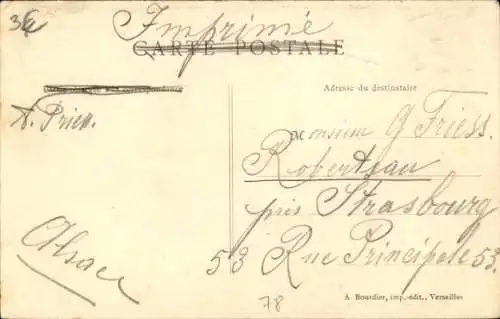 36
Imprimé
CARTE POSTALE
Adresse du destinataire
Monsieur G Friess.
A. Prien.
Robertsau
près Strasbourg
Alsace
53 Rue Principale 53
78
A Bourdier, imp.-édit., Versailles